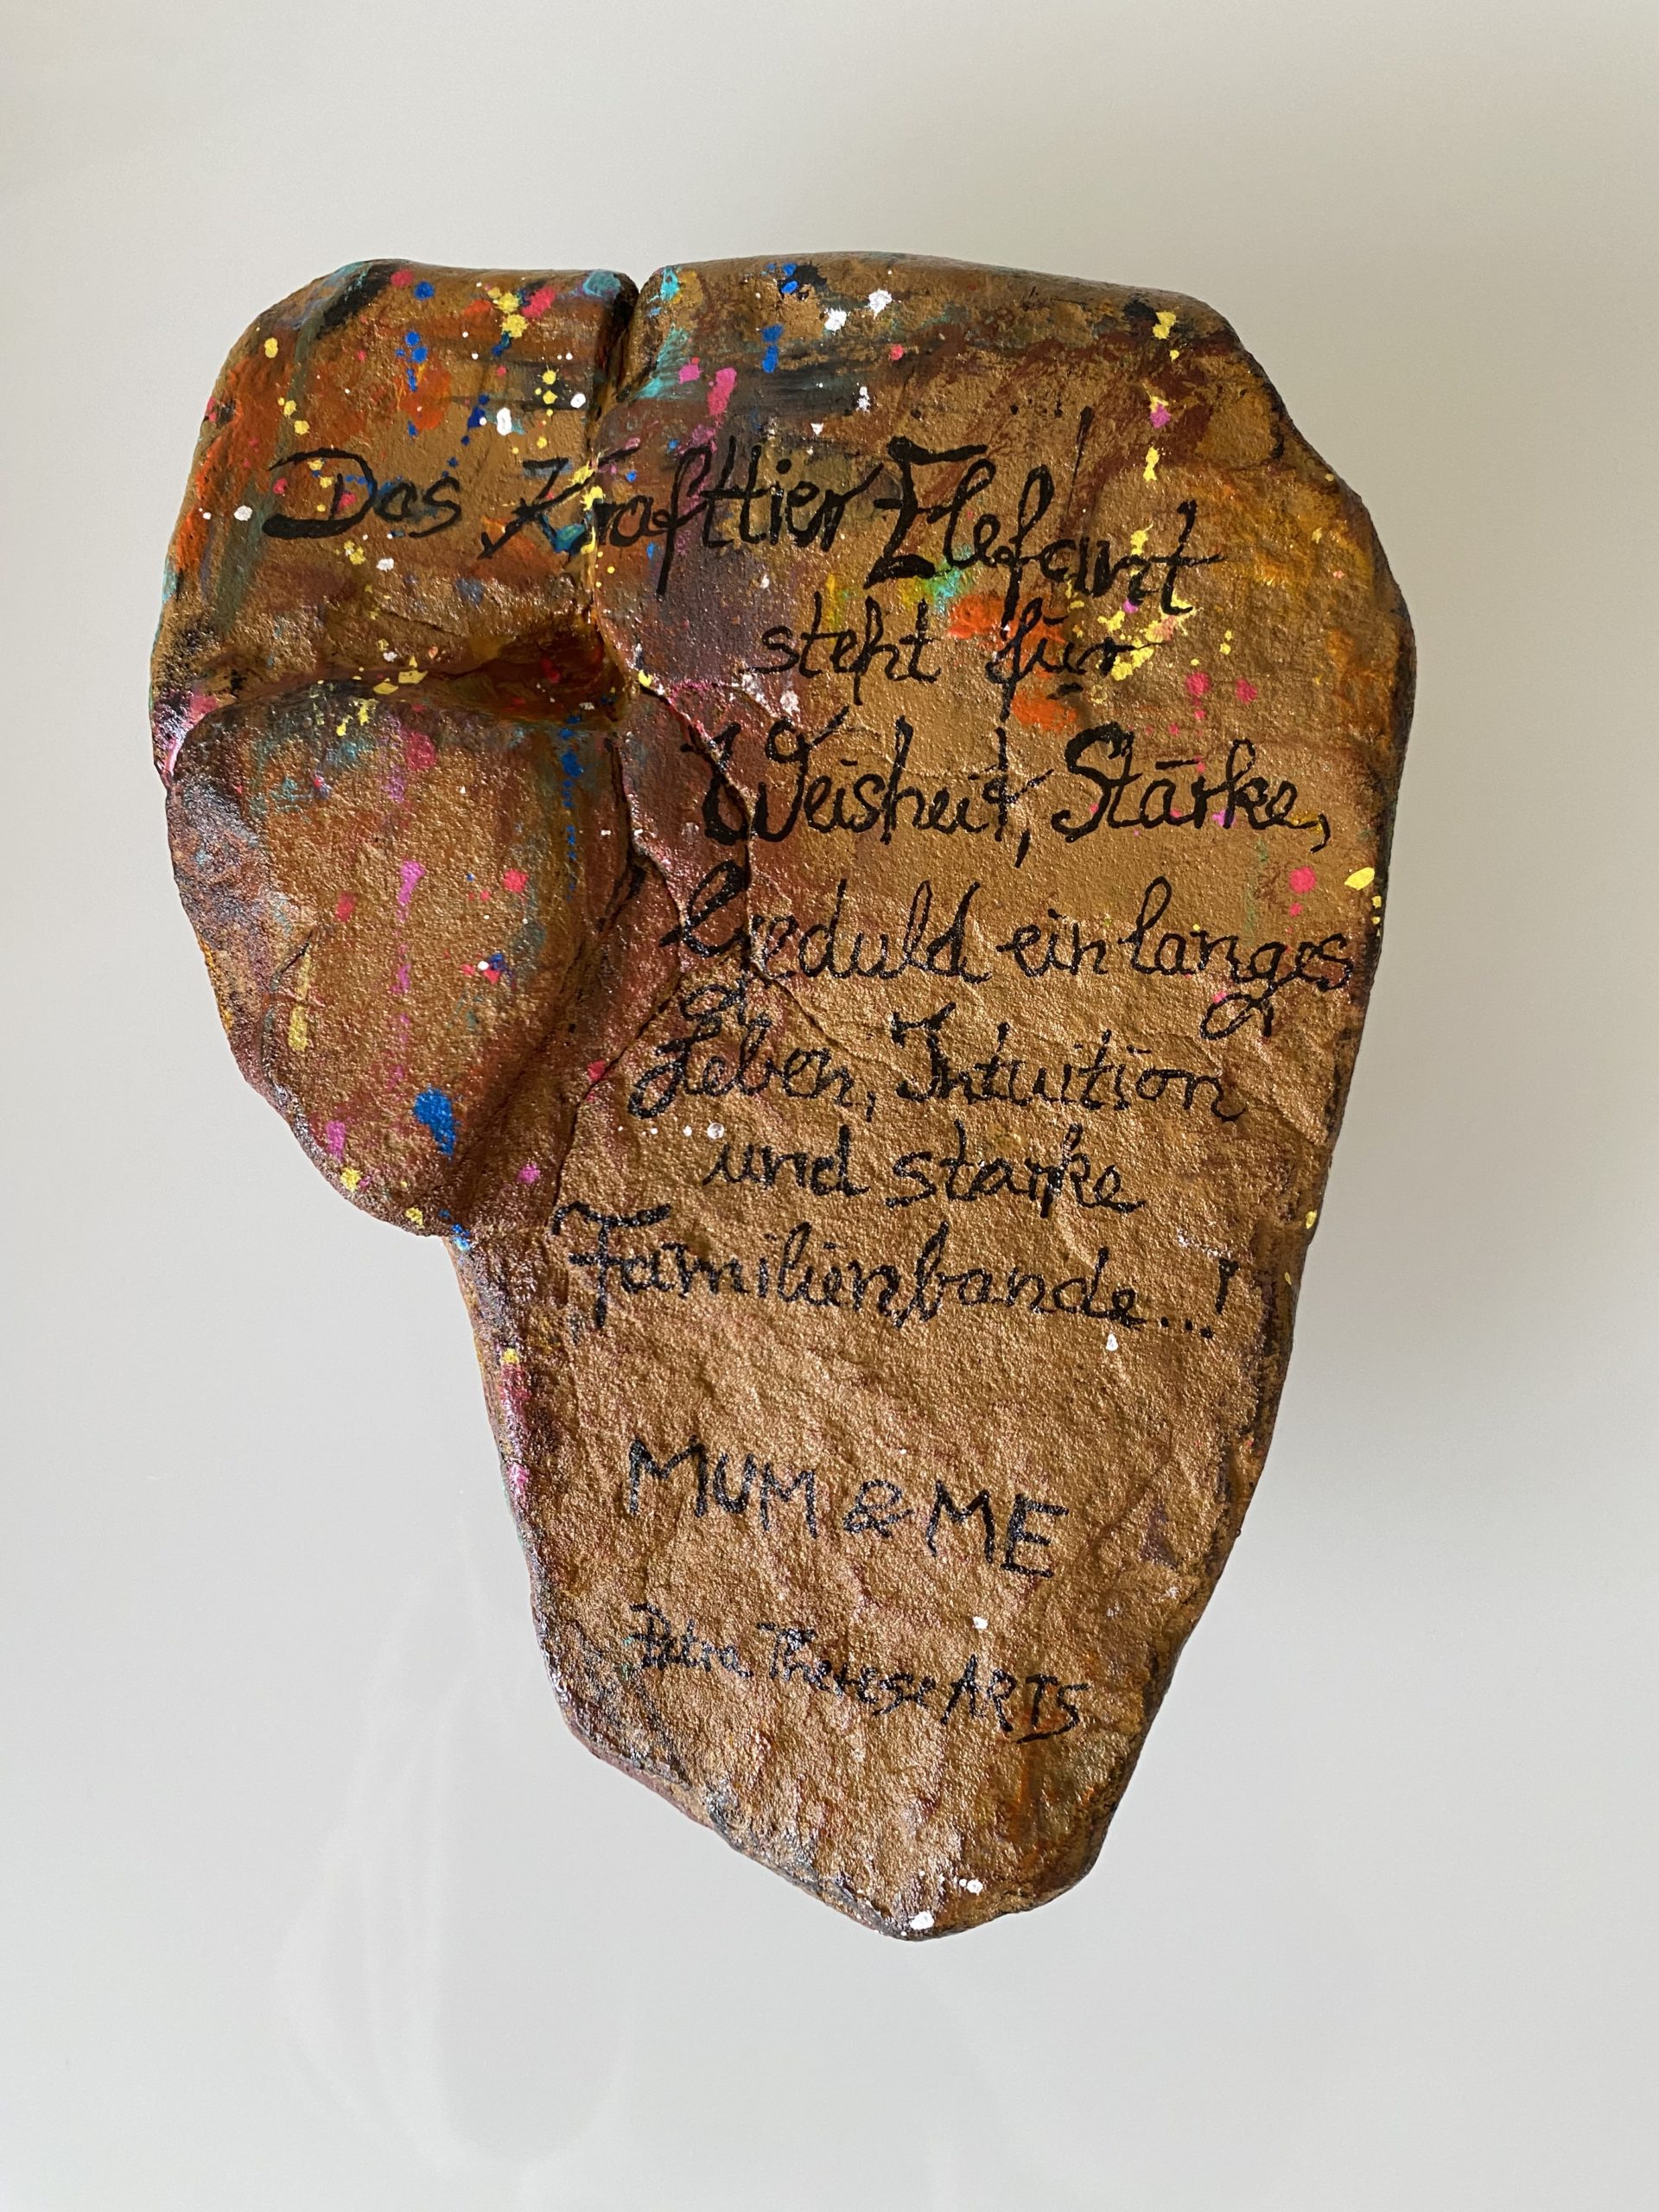 Das Krafttier Elefant
steht für
Weisheit, Stärke,
Geduld ein langes
Leben, Intuition
und starke
Familienbande...!
MUM & ME
Petra Therese ARTS